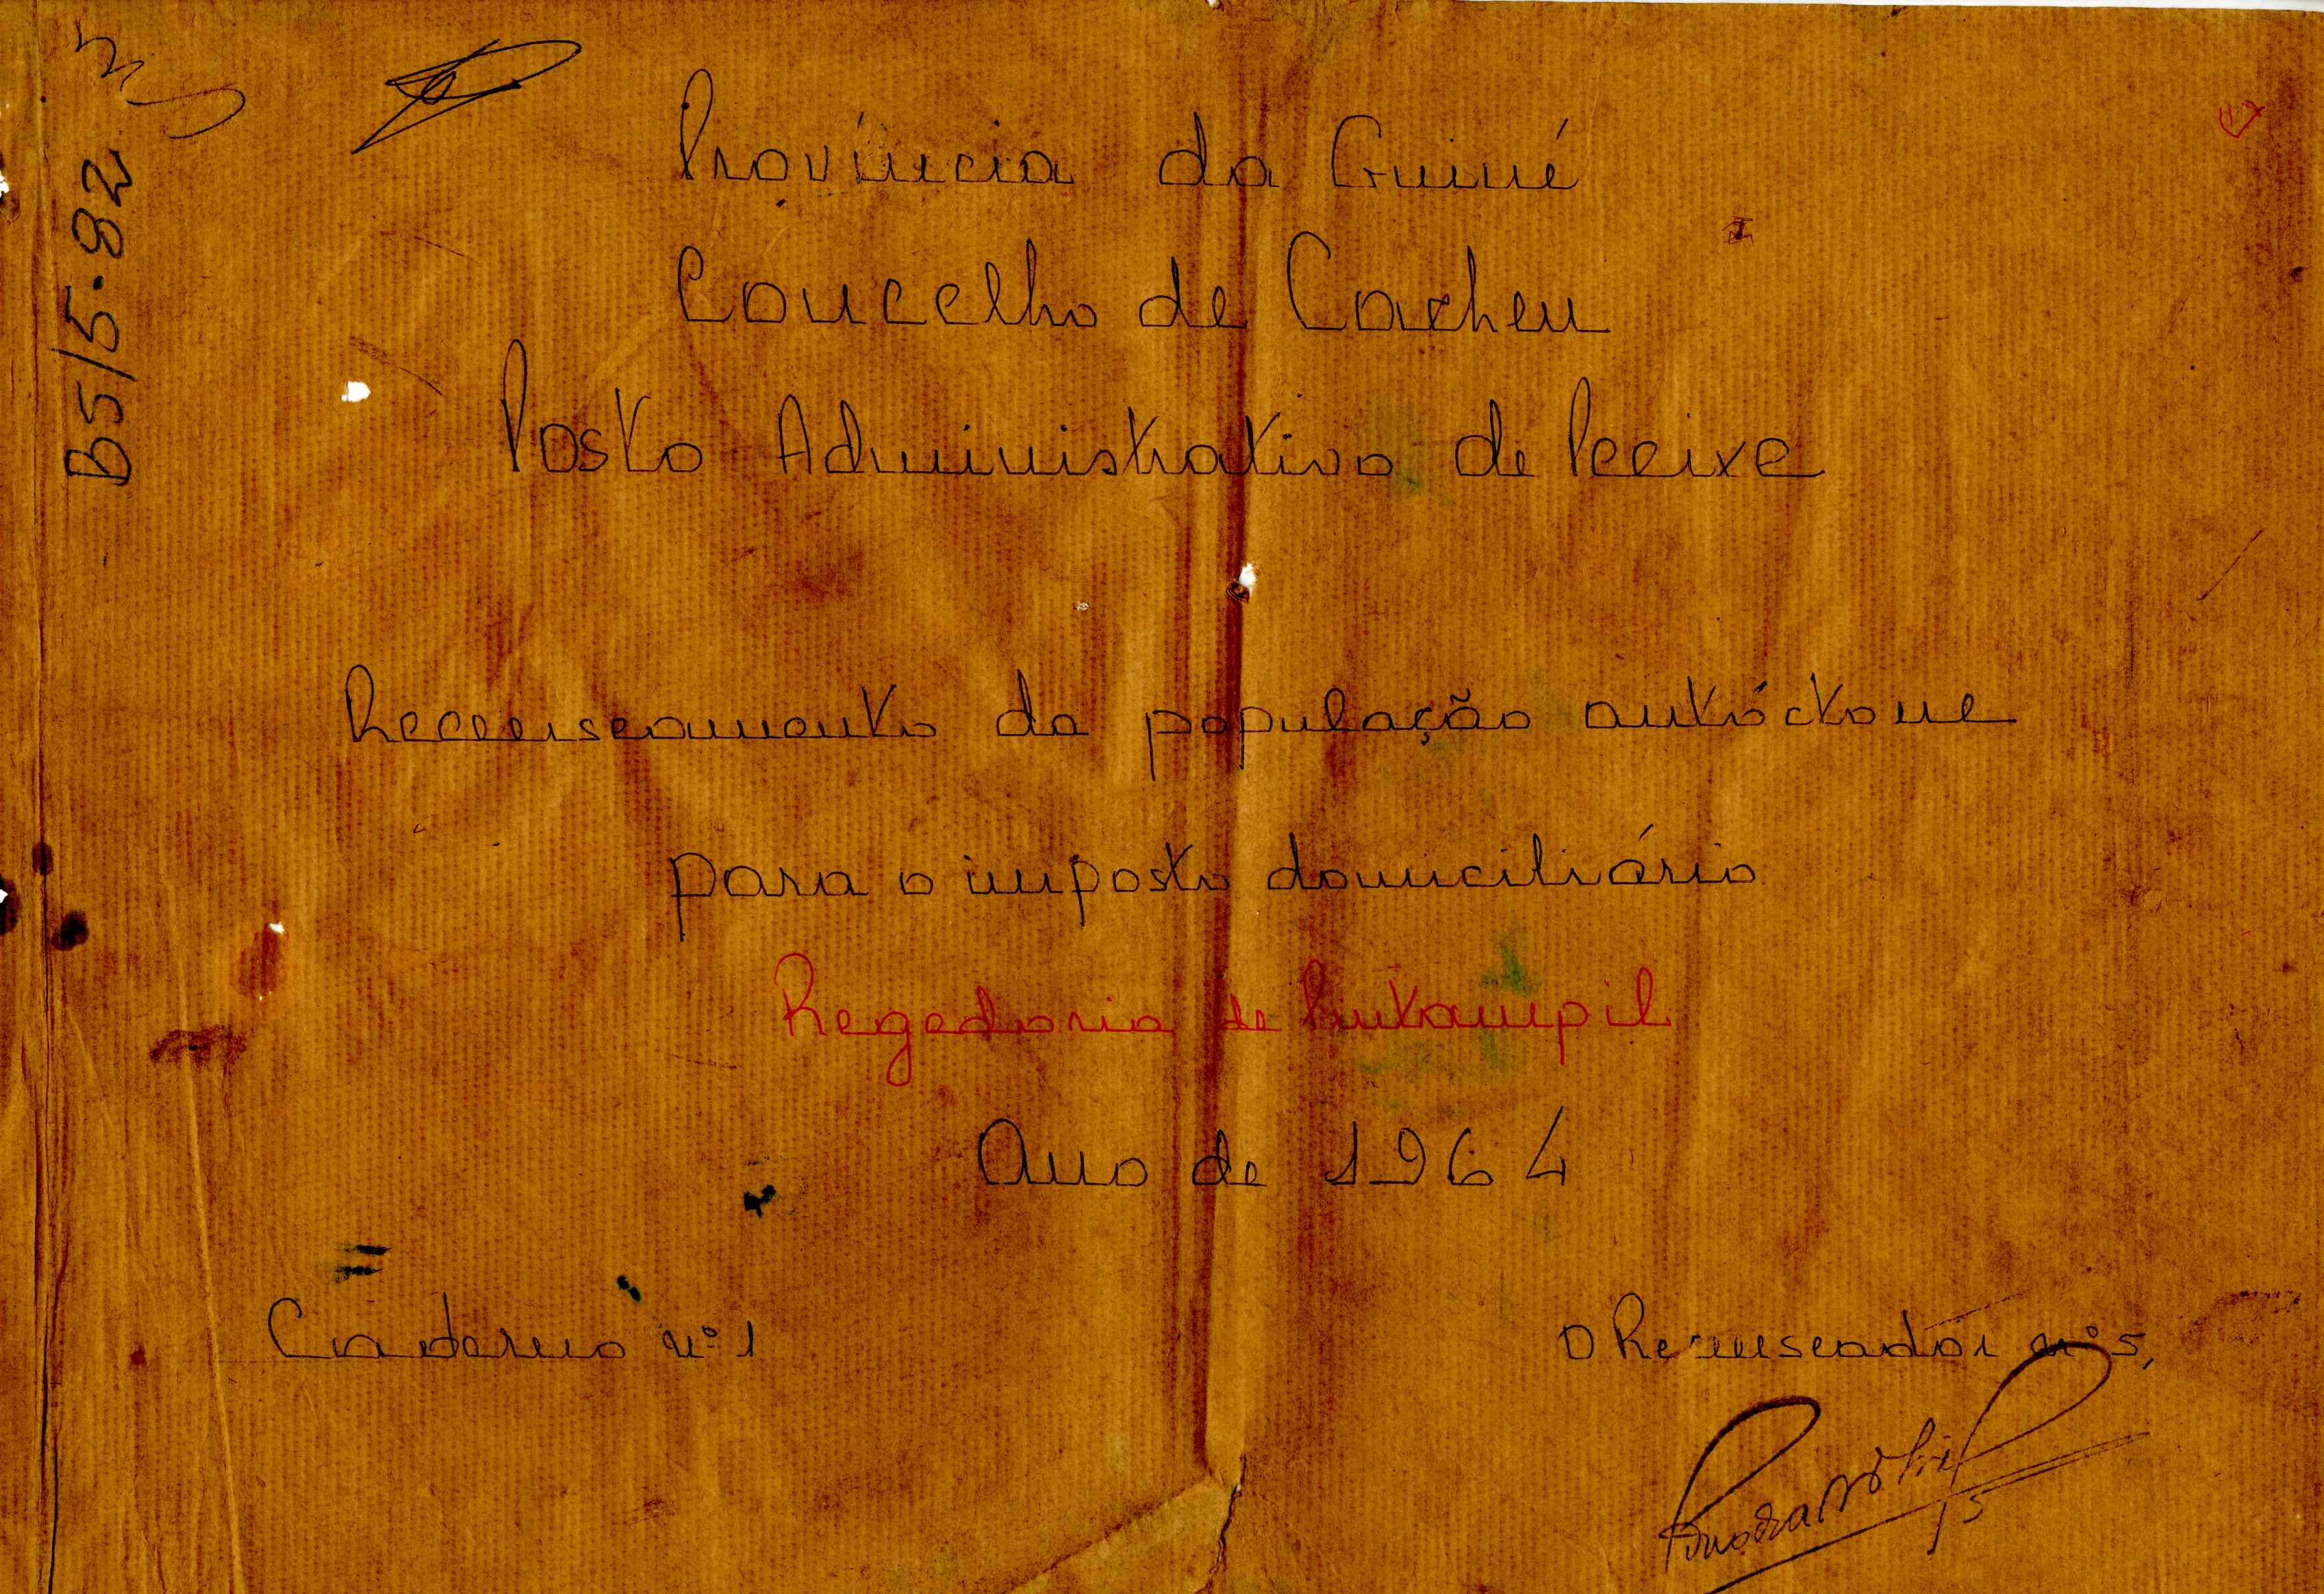 B5/5.82
Província da Guiné
Concelho de Cacheu
Posto Administrativo de Pecixe
Recenseamento da população autóctone
para o imposto domiciliário
Regedoria de
Ano de 1964
Caderno nº 1
O Recenseador nº 5,